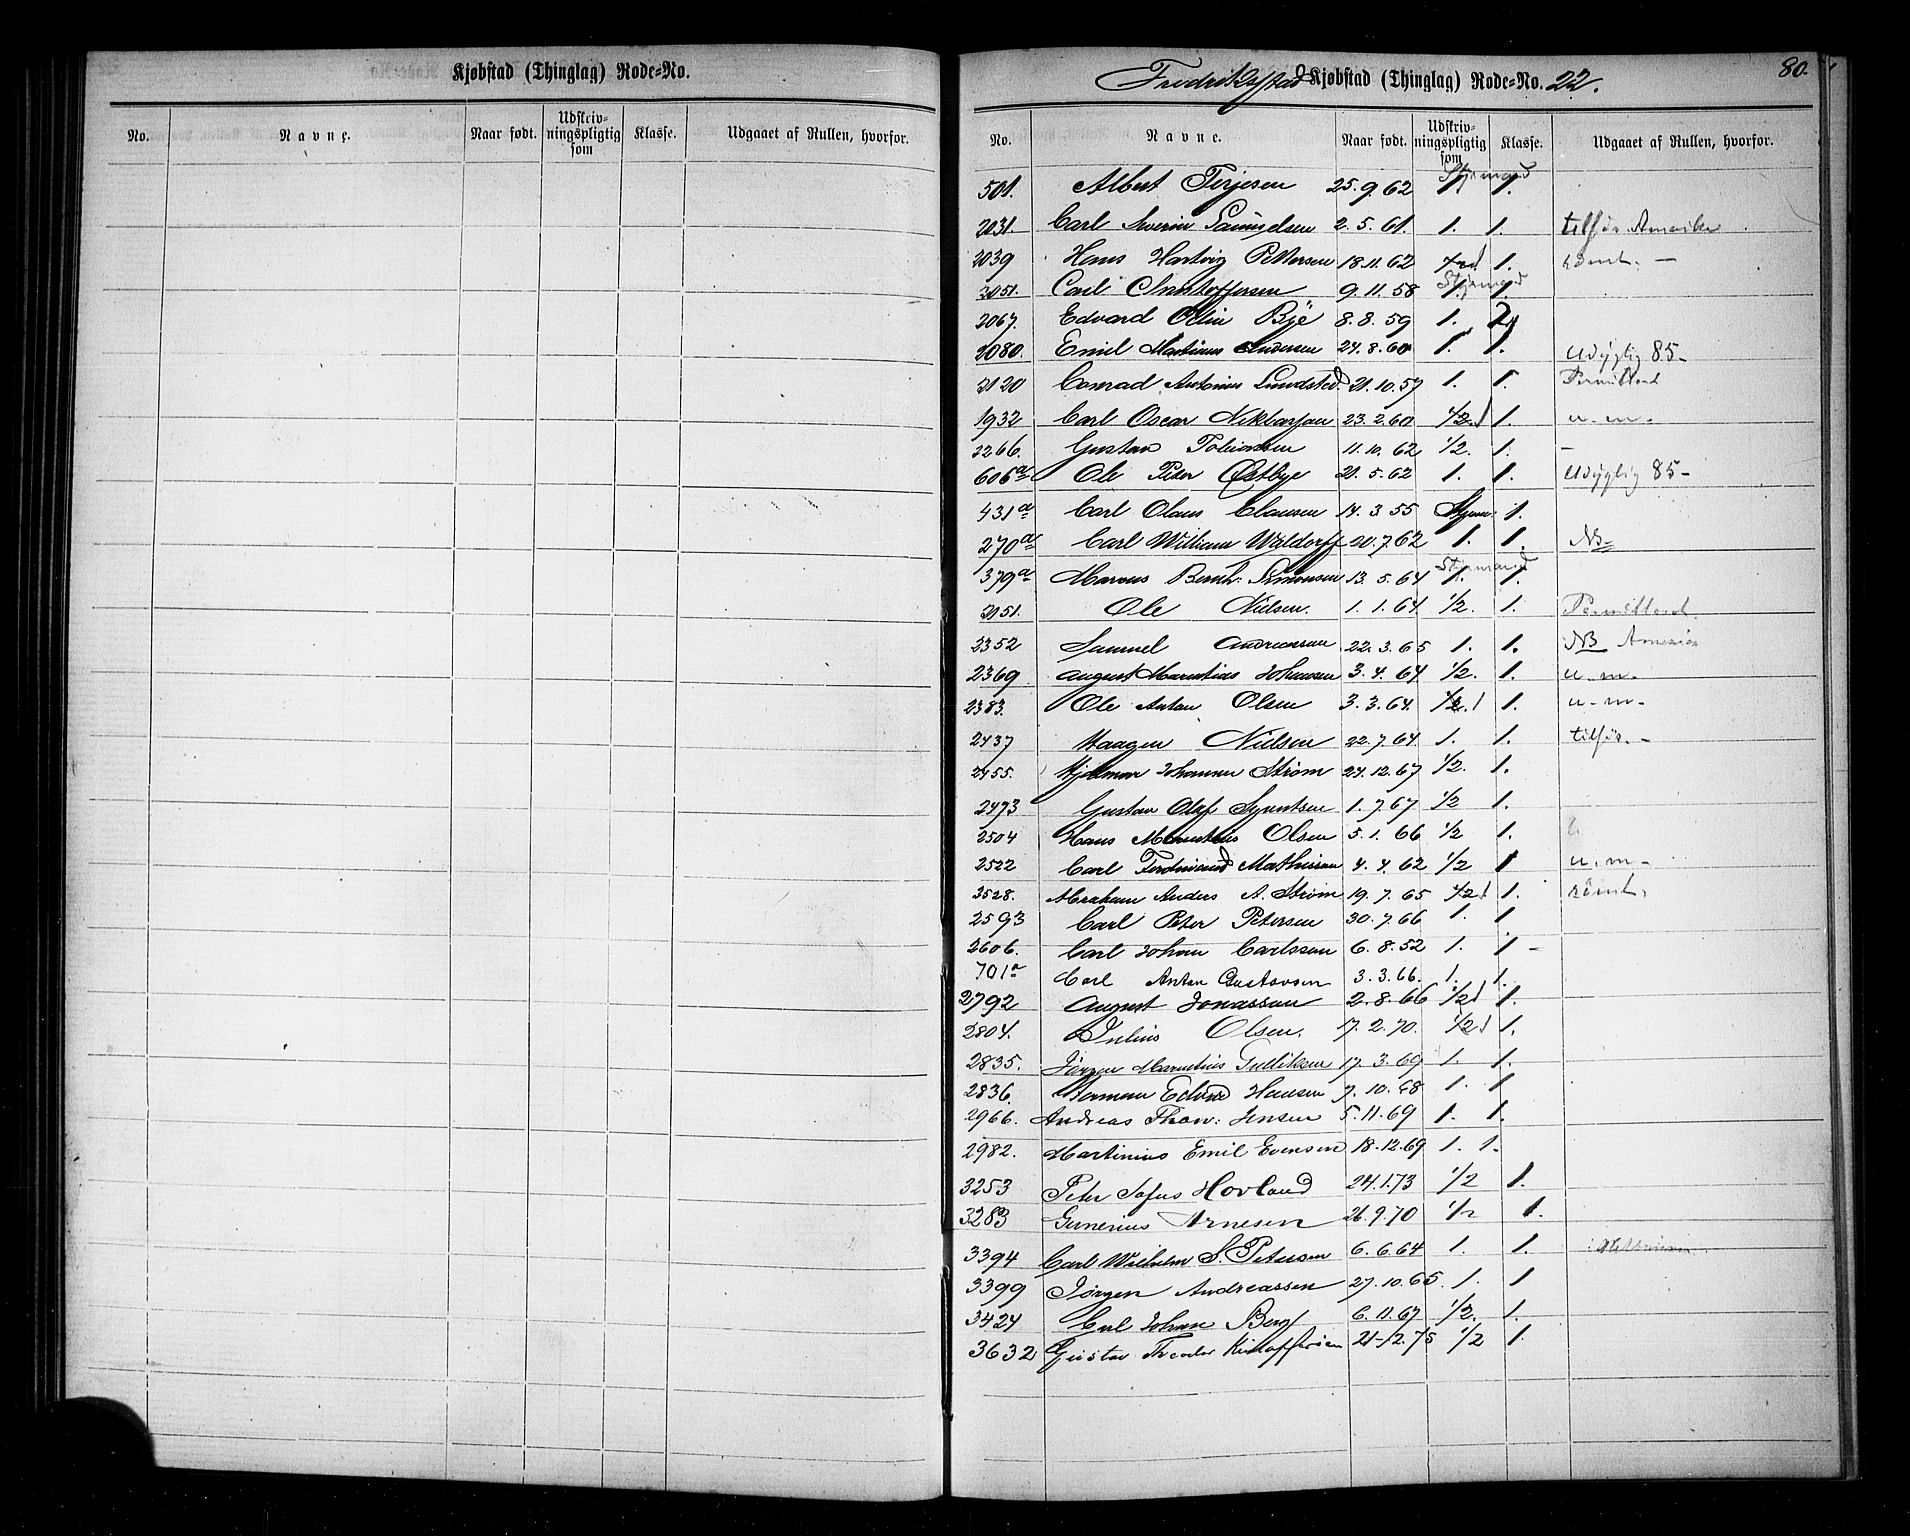 Kjøbstad (Thinglag) Rode=No.
No. Navne. Naar født. Udskriv=ningspligtig som Klasse. Udgaaet af Rullen, hvorfor.
80.
Fredrikstad Kjøbstad (Thinglag) Rode=No. 22.
No. Navne. Naar født. Udskriv=ningspligtig som Klasse. Udgaaet af Rullen, hvorfor.
501. Albert Terjesen 25.9.62 1. 1. Styrmand
2031. Carl Severin Samuelsen 2.5.61. 1. 1. tilfós. Amerika
2039 Hans Hartvig Pettersen 18.11.62 1. römt. —
Carl Christoffersen 9.11.58 Styrmand 1. 1.
2067. Edvard Odin Bye 8.8.59 1. 2
2080. Emil Martinus Andersen 24.8.60 1. 1. Udyglig 85-
2120 Conrad Antonius Lundsted 21.10.57 1. 1. Permitterd
1932 Carl Oscar 23.2.60 1/2. 1 1. u.m.
2266. Gustav Tobiassen 11.10.62 1/2. 1. –
606a Ole Peter Østbye 21.5.62 1. 1. Udyglig 85-
431a Carl Olaus Clausen 14.3.55 Styrm: 1.
270a Carl William Waldorff 20.7.62 1. 1. NB-
379a Marcus Bernh: Simonsen 13.5.64 Styrmand 1. 1.
Ole Nielsen. 1.1.64 1/2. 1. Permitterd.
2352 Samuel Andreassen 22.3.65 1. 1. NB Amerika
2369 August Marentius Johansen 3.4.64 1/2. 1. u.m.
2383. Ole Anton Olsen 3.3.64. 1/2. 1 1. u.m.
2437 Haagen Nielsen 22.7.64 1. 1. tilfös. –
2455. Hjalmar Johannes Strøm 24.12.67 1/2. 1.
2473 Gustav Olaf Syvertsen 1.7.67 1/2 1.
2504 Hans Marentius Olsen 5.1.66 1/2 1.
2522 Carl Ferdinand Mathissen 4.4.62 1/2 1 u.m-
2528. Abraham Anders A. Strøm 19.7.65 1/2 1 1. römt.
2593 Carl Peter Petersen 30.7.66 1. 1
2606. Carl Johan Carlsson 6.8.52 1. 1 –
701a Carl Anton Gustavsen 3.3.66. 1. 1.
2792 August Jonassen 2.8.66 1/2 1 1.
2804. Julius Olsen. 17.2.70. 1/2 1 1.
2835. Jørgen Marentius Gulliksen 17.3.69 1. 1.
2836. Herman Edvard Hansen 7.10.68 1. 1
2966. Andreas Thorv: Jensen 5.11.69 1. 1.
2982. Martinius Emil Evensen 18.12.69 1. 1.
3253 Peter Sofus Hovland 24.1.73 1/2 1.
3283 Gunerius Arnesen 26.9.70 1/2 1.
3394 Carl Wilhelm S. Petersen 6.6.64 1. 1.
3399 Jørgen Andreassen 27.10.65. 1. 1
3424 Carl Johan Berg 6.11.67 1/2. 1.
3632 Gustav Theodor Kristoffersen 21-12.75 1/2 1.